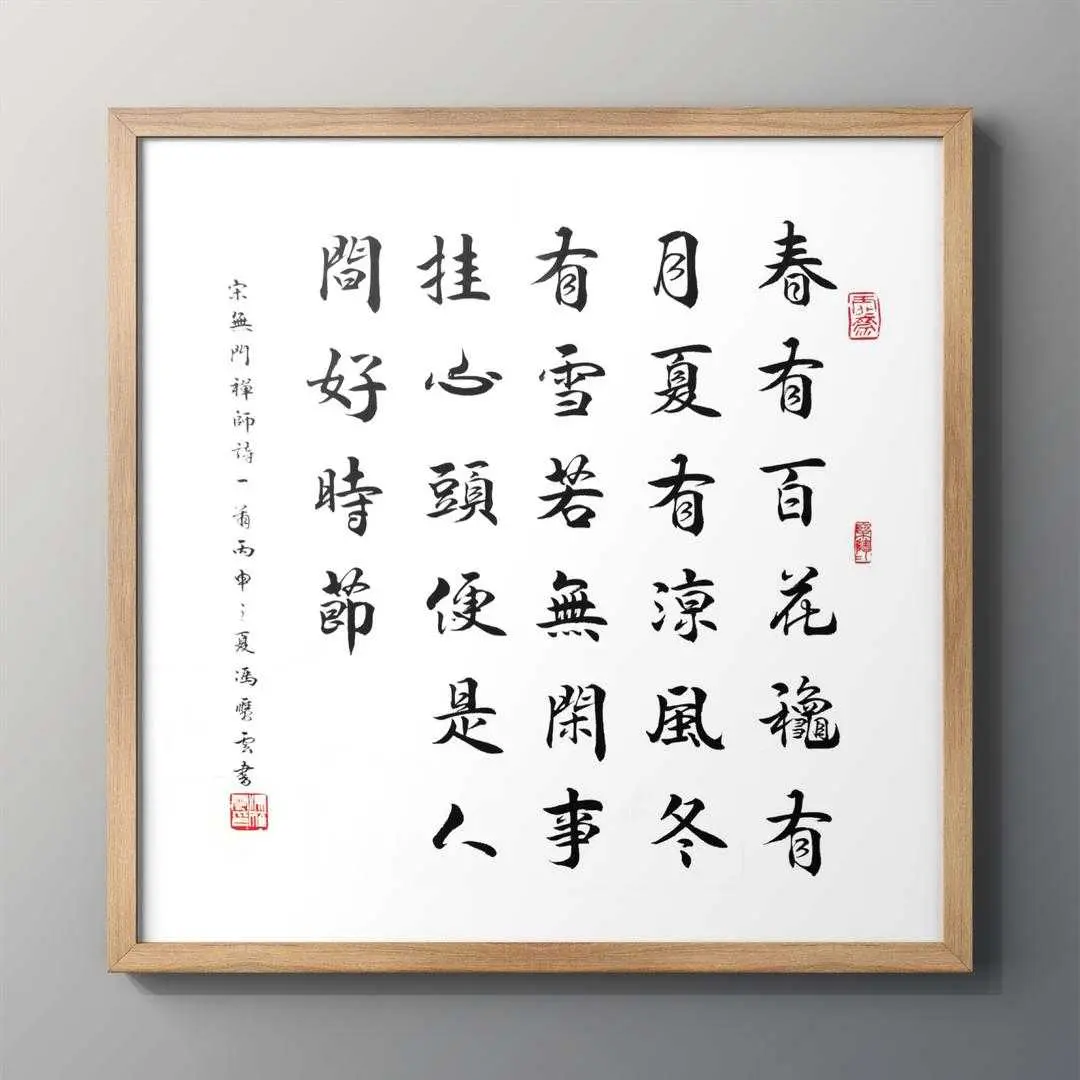 春有百花龝有
月夏有涼風冬
有雪若無閑事
挂心頭便是人
間好時節
宋無門禪師詩一首丙申之夏馮雲書